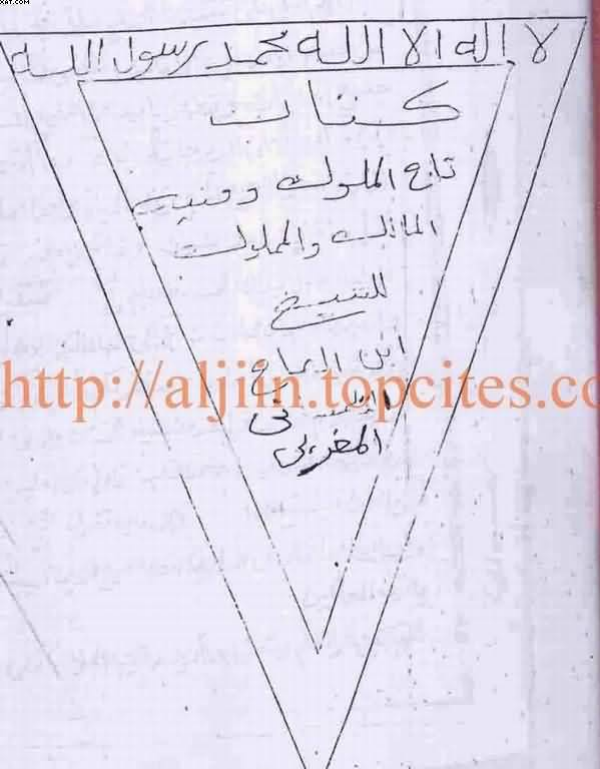 XAT.COM
لا إله الا الله محمد رسول الله
كتاب
تاج الملوك ومنية
المالك والمملوك
للشيخ
ابن الحاج
التلمساني
المغربي
http://aljiin.topcites.co